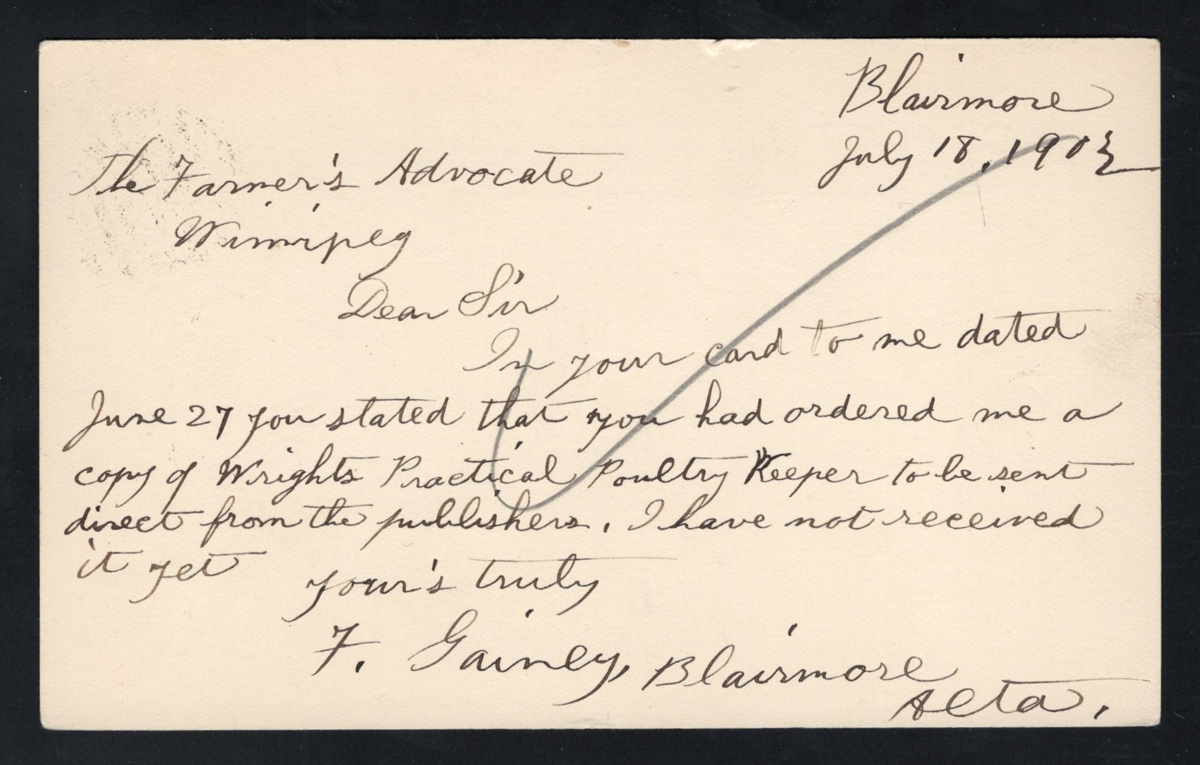 Blairmore
July 18, 1903
The Farmer's Advocate
Winnipeg
Dear Sir
In your card to me dated
June 27 you stated that you had ordered me a
copy of Wrights Practical Poultry Keeper to be sent
direct from the publishers. I have not received
it yet
your's truly
F. Gainey, Blairmore
Alta.